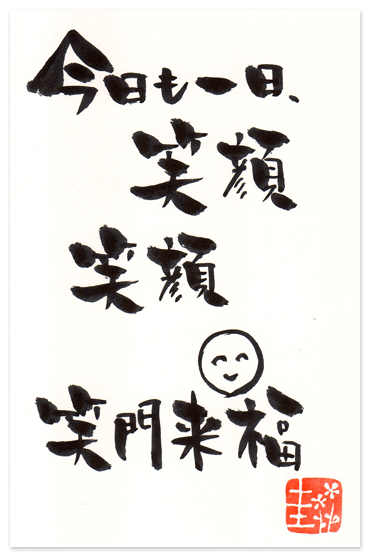 今日も一日、
笑顔
笑顔
笑門来福